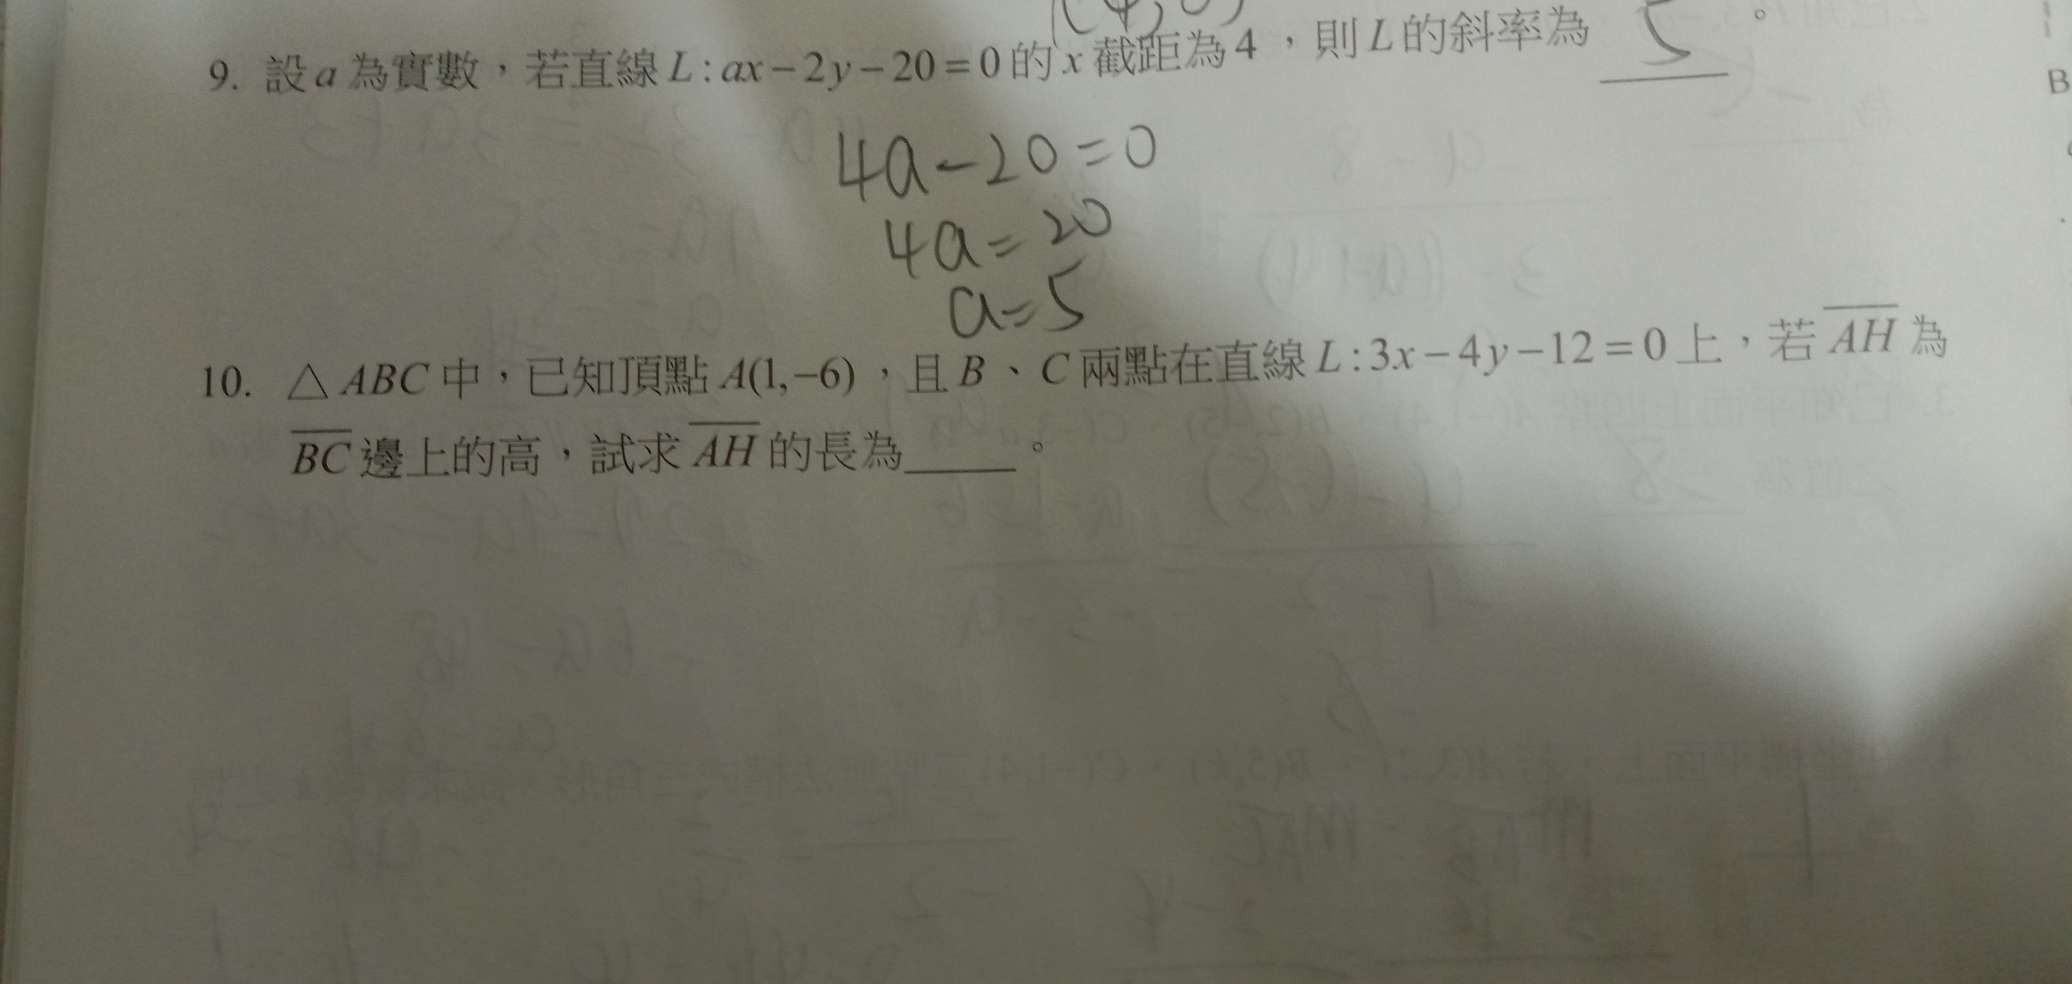 (4,0)
9. 設a為實數，若直線L:ax−2y−20=0的x截距為4，則L的斜率為 5 。
4a−20=0
4a=20
a=5
10. △ABC中，已知頂點A(1,−6)，且B、C兩點在直線L:3x−4y−12=0上，若AH為
BC邊上的高，試求AH的長為_____。
B